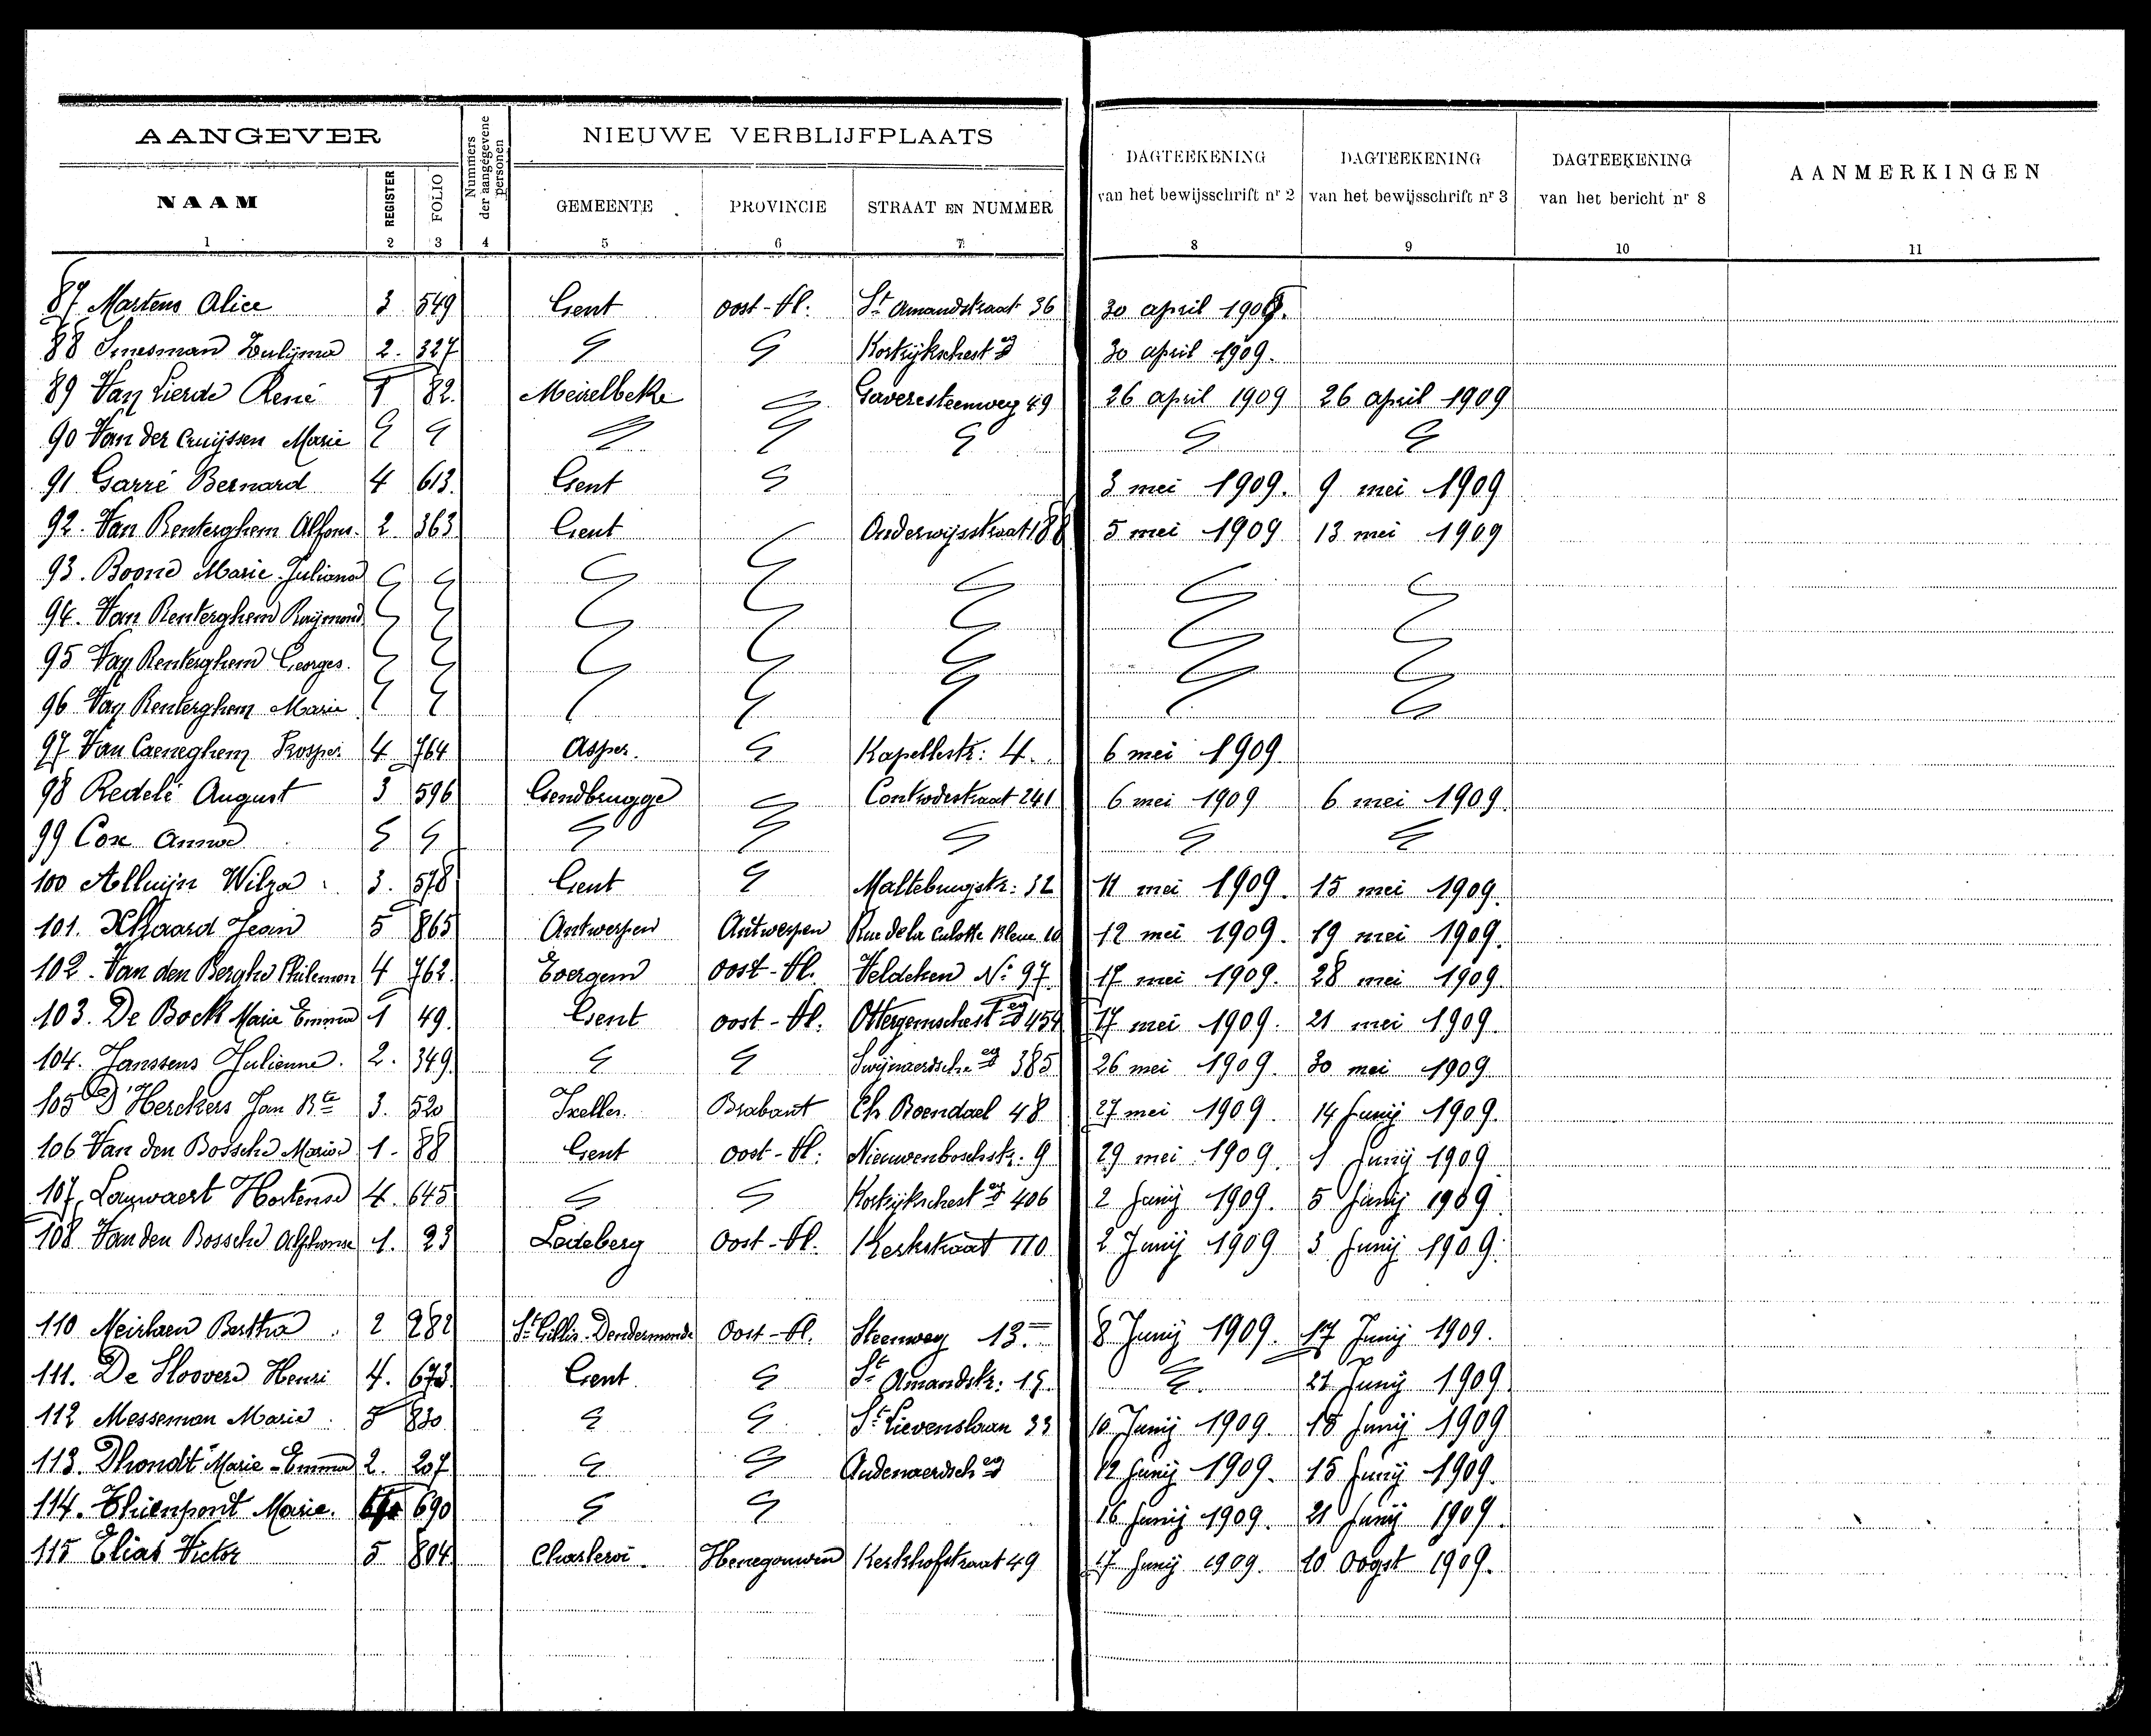 AANGEVER
NIEUWE VERBLIJFPLAATS
NAAM REGISTER FOLIO Nummers der aangegevene personen GEMEENTE PROVINCIE STRAAT EN NUMMER DAGTEEKENING van het bewijsschrift nr 2 DAGTEEKENING van het bewijsschrift nr 3 DAGTEEKENING van het bericht nr 8 AANMERKINGEN
1 2 3 4 5 6 7 8 9 10 11
87 Martens Alice 3 549 Gent oost-Vl. St Amandstraat 36 30 april 1909.
88 Smesman Zulijma 2. 327 30 april 1909.
89 Van Lierde René 1 82. Meirelbeke Gaveresteenweg 49 26 april 1909 26 april 1909
90 Van der Cruijssen Marie
91 Garré Bernard 4 613. Gent 3 mei 1909. 9 mei 1909
92. Van Renterghem Alfons. 2 363 Gent Onderwijsstraat 188 5 mei 1909 13 mei 1909
93. Boone Marie Juliana
94. Van Renterghem Raymond
95 Van Renterghem Georges.
96 Van Renterghem Marie
97 Van Caeneghem Prosper 4 764 Asper. Kapellestr: 4. 6 mei 1909
98 Redelé August 3 596 Gendbrugge 6 mei 1909 6 mei 1909
99 Cox Anna
100 Alluijn Wilza 3. 578 Gent Maltebrugstr: 32 11 mei 1909. 15 mei 1909.
101. Jean 5 865 Antwerpen Antwerpen Rue de la Culotte Bleue 10 12 mei 1909. 19 mei 1909.
102. Van den Berghe Philemon 4 762. Evergem oost-Vl. Veldeken No 97 17 mei 1909. 28 mei 1909.
103. De Bock Marie Emma 1 49. Gent oost-Vl. 454 17 mei 1909. 21 mei 1909.
104. Janssens Julienne. 2. 349. 385 26 mei 1909. 30 mei 1909
105 D'Herckers Jan Bte 3. 520 Ixelles. Brabant Ch Boendael 48 27 mei 1909. 14 Junij 1909.
106 Van den Bossche Maria 1. 88 Gent oost-Vl. Nieuwenboschstr. 9 29 mei 1909. 1 Junij 1909
107. Hortense 4. 645 406 2 Junij 1909. 5 Junij 1909
108 Van den Bossche Alphonse 1. 23 Ledeberg Oost-Vl. Kerkstraat 110 2 Junij 1909 3 Junij 1909.
110 Meirlaen Bertha. 2 282 St Gillis-Dendermonde Oost-Vl. Steenweg 13. 8 Junij 1909. 17 Junij 1909.
111. De Sloovere Henri 4. 673 Gent St Amandstr: 15. 21 Junij 1909
112 Messeman Marie. 5 830 St Lievenslaan 33 10 Junij 1909. 15 Junij 1909
113. Dhondt Marie-Emma 2. 207 12 Junij 1909. 15 Junij 1909.
114. Thienpont Marie. 690 16 Junij 1909. 21 Junij 1909.
115 Elias Victor 5 804 Charleroi. Henegouwen Kerkhofstraat 49 17 Junij 1909. 10 Oogst 1909.